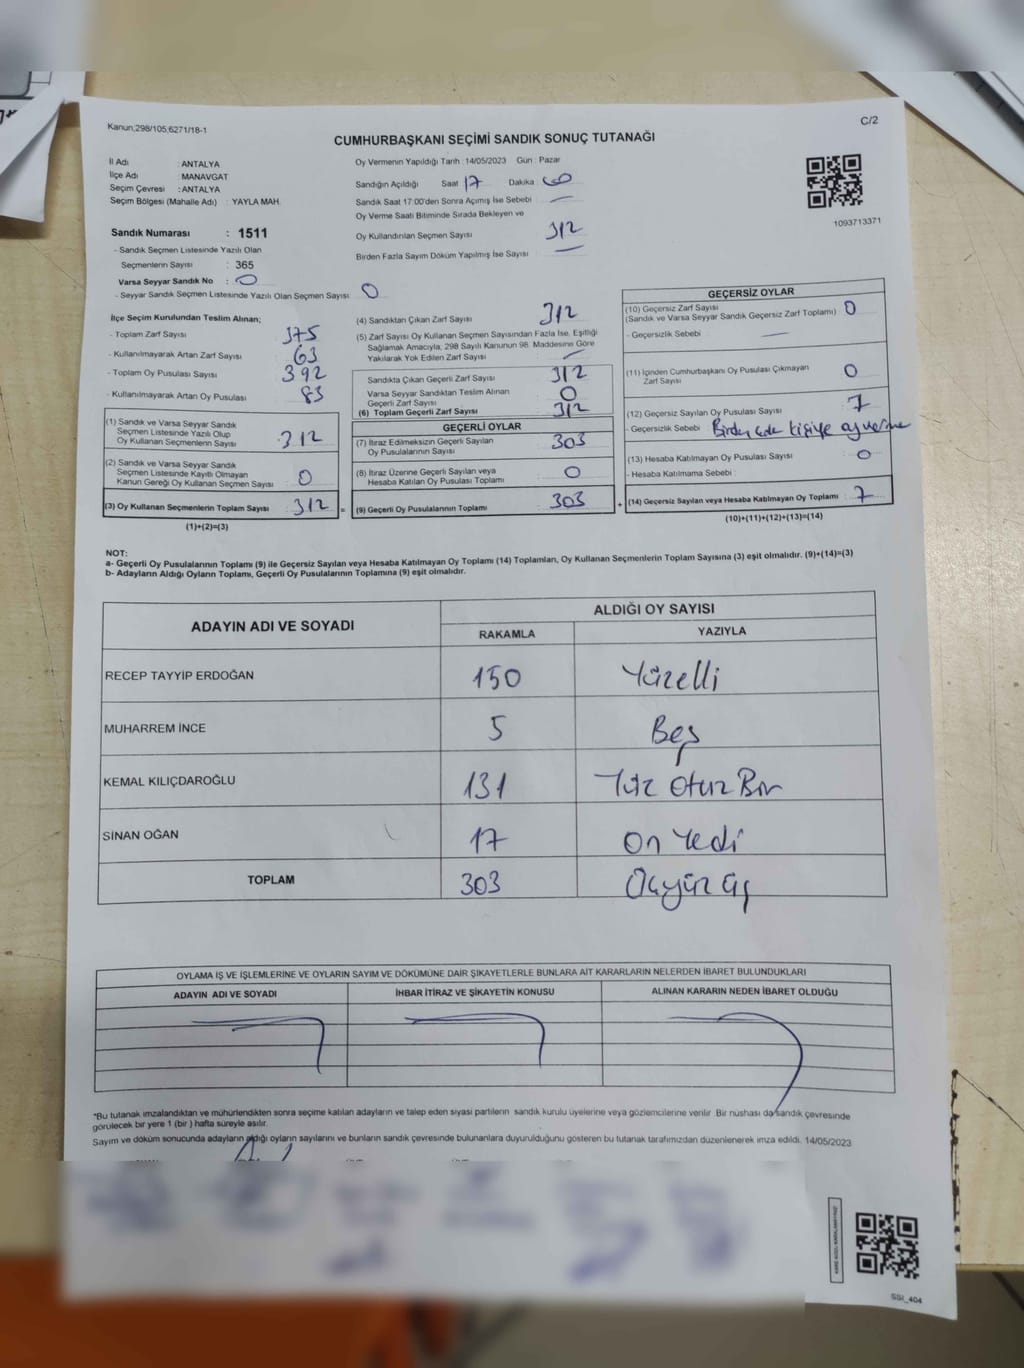 Kanun;298/105;6271/18-1
C/2
CUMHURBAŞKANI SEÇİMİ SANDIK SONUÇ TUTANAĞI
İl Adı : ANTALYA
İlçe Adı : MANAVGAT
Seçim Çevresi : ANTALYA
Seçim Bölgesi (Mahalle Adı) : YAYLA MAH.
Sandık Numarası : 1511
- Sandık Seçmen Listesinde Yazılı Olan
Seçmenlerin Sayısı : 365
Varsa Seyyar Sandık No : 0
- Seyyar Sandık Seçmen Listesinde Yazılı Olan Seçmen Sayısı : 0
Oy Vermenin Yapıldığı Tarih : 14/05/2023 Gün : Pazar
Sandığın Açıldığı Saat 17 Dakika : 00
Sandık Saat 17:00'den Sonra Açımış İse Sebebi : —
Oy Verme Saati Bitiminde Sırada Bekleyen ve
Oy Kullandırılan Seçmen Sayısı : 312
Birden Fazla Sayım Döküm Yapılmış İse Sayısı : —
1093713371
İlçe Seçim Kurulundan Teslim Alınan;
- Toplam Zarf Sayısı : 375
- Kullanılmayarak Artan Zarf Sayısı : 63
- Toplam Oy Pusulası Sayısı : 392
- Kullanılmayarak Artan Oy Pusulası : 83
(1) Sandık ve Varsa Seyyar Sandık
Seçmen Listesinde Yazılı Olup
Oy Kullanan Seçmenlerin Sayısı : 312
(2) Sandık ve Varsa Seyyar Sandık
Seçmen Listesinde Kayıtlı Olmayan
Kanun Gereği Oy Kullanan Seçmen Sayısı : 0
(3) Oy Kullanan Seçmenlerin Toplam Sayısı : 312 =
(1)+(2)=(3)
(4) Sandıktan Çıkan Zarf Sayısı : 312
(5) Zarf Sayısı Oy Kullanan Seçmen Sayısından Fazla İse, Eşitliği
Sağlamak Amacıyla, 298 Sayılı Kanunun 98. Maddesine Göre
Yakılarak Yok Edilen Zarf Sayısı : —
Sandıkta Çıkan Geçerli Zarf Sayısı : 312
Varsa Seyyar Sandıktan Teslim Alınan
Geçerli Zarf Sayısı : 0
(6) Toplam Geçerli Zarf Sayısı : 312
GEÇERLİ OYLAR
(7) İtiraz Edilmeksizin Geçerli Sayılan
Oy Pusulalarının Sayısı : 303
(8) İtiraz Üzerine Geçerli Sayılan veya
Hesaba Katılan Oy Pusulası Toplamı : 0
(9) Geçerli Oy Pusulalarının Toplamı : 303 +
GEÇERSİZ OYLAR
(10) Geçersiz Zarf Sayısı
(Sandık ve Varsa Seyyar Sandık Geçersiz Zarf Toplamı) : 0
- Geçersizlik Sebebi : —
(11) İçinden Cumhurbaşkanı Oy Pusulası Çıkmayan
Zarf Sayısı : 0
(12) Geçersiz Sayılan Oy Pusulası Sayısı : 7
- Geçersizlik Sebebi : Birden çok kişiye oy verme
(13) Hesaba Katılmayan Oy Pusulası Sayısı : 0
- Hesaba Katılmama Sebebi :
(14) Geçersiz Sayılan veya Hesaba Katılmayan Oy Toplamı : 7
(10)+(11)+(12)+(13)=(14)
NOT:
a- Geçerli Oy Pusulalarının Toplamı (9) ile Geçersiz Sayılan veya Hesaba Katılmayan Oy Toplamı (14) Toplamları, Oy Kullanan Seçmenlerin Toplam Sayısına (3) eşit olmalıdır. (9)+(14)=(3)
b- Adayların Aldığı Oyların Toplamı, Geçerli Oy Pusulalarının Toplamına (9) eşit olmalıdır.
ADAYIN ADI VE SOYADI
ALDIĞI OY SAYISI
RAKAMLA YAZIYLA
RECEP TAYYİP ERDOĞAN 150 Yüzelli
MUHARREM İNCE 5 Beş
KEMAL KILIÇDAROĞLU 131 Yüz Otuz Bir
SİNAN OĞAN 17 On Yedi
TOPLAM 303 Üçyüz üç
OYLAMA İŞ VE İŞLEMLERİNE VE OYLARIN SAYIM VE DÖKÜMÜNE DAİR ŞİKAYETLERLE BUNLARA AİT KARARLARIN NELERDEN İBARET BULUNDUKLARI
ADAYIN ADI VE SOYADI İHBAR İTİRAZ VE ŞİKAYETİN KONUSU ALINAN KARARIN NEDEN İBARET OLDUĞU
*Bu tutanak imzalandıktan ve mühürlendikten sonra seçime katılan adayların ve talep eden siyasi partilerin sandık kurulu üyelerine veya gözlemcilerine verilir. Bir nüshası da sandık çevresinde
görülecek bir yere 1 (bir) hafta süreyle asılır.
Sayım ve döküm sonucunda adayların aldığı oyların sayılarını ve bunların sandık çevresinde bulunanlara duyurulduğunu gösteren bu tutanak tarafımızdan düzenlenerek imza edildi. 14/05/2023
SSI_404